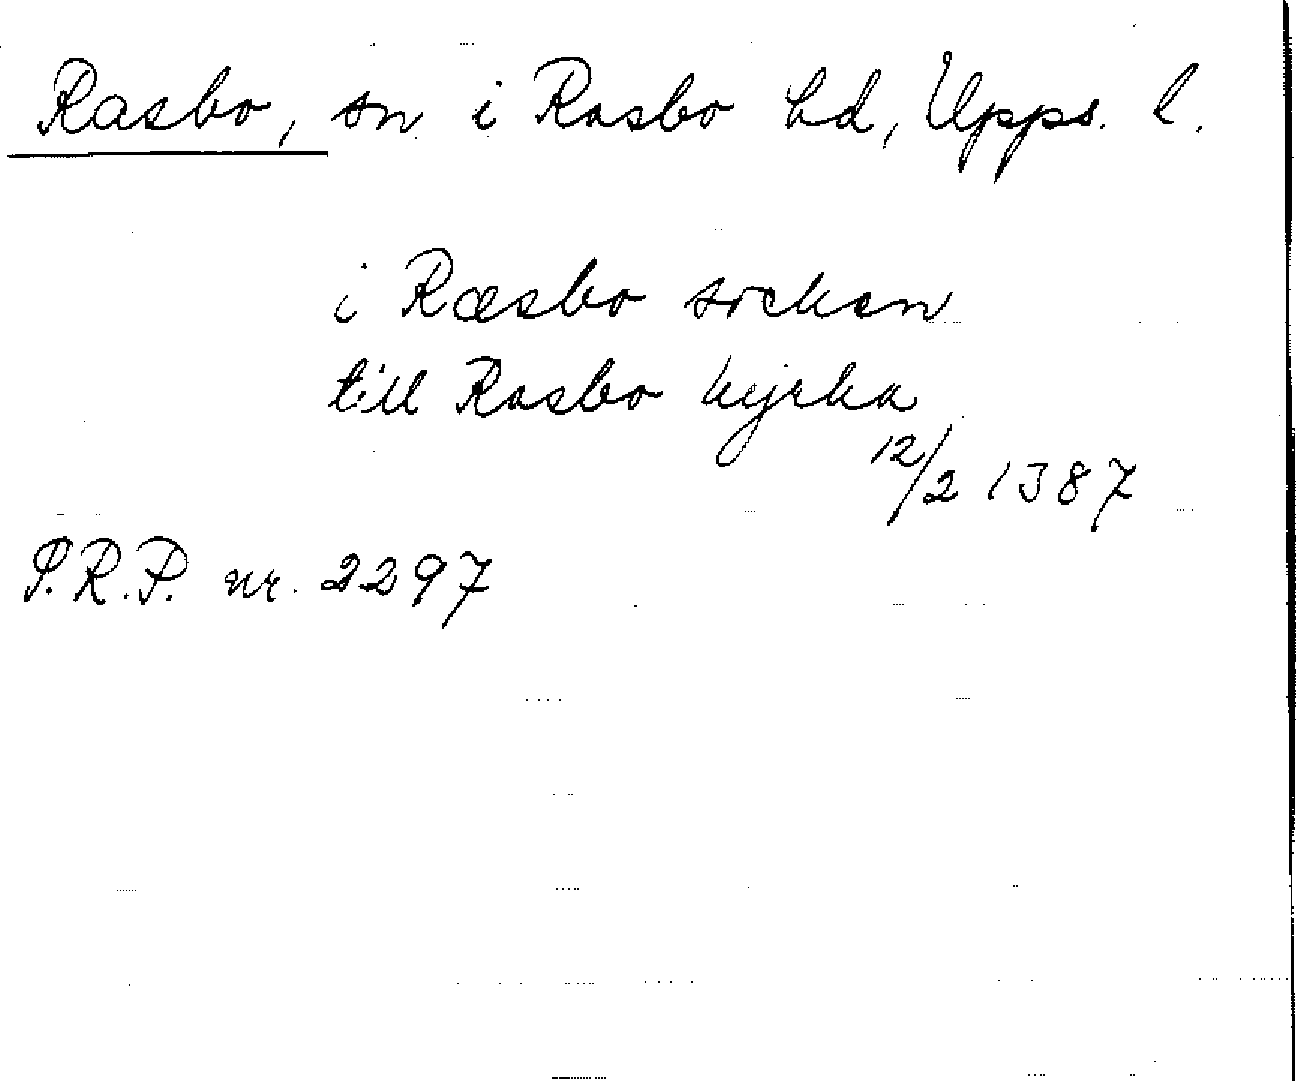 Rasbo, sn i Rasbo hd, Upps. l.
i Ræsbo socken
till Rasbo kyrka
12/2 1387
S.R.P. nr. 2297